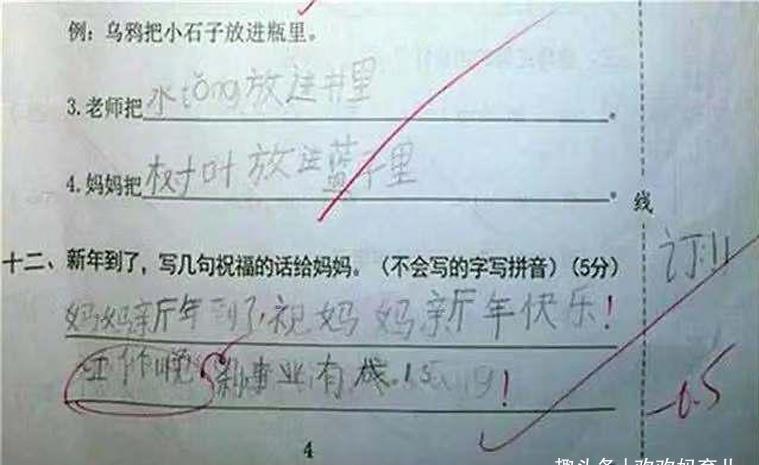 例：乌鸦把小石子放进瓶里。
3.老师把水tǒng放进井里。
4.妈妈把树叶放进蓝子里。
线
十二、新年到了，写几句祝福的话给妈妈。（不会写的字写拼音）（5分）
订
妈妈新年到了，祝妈妈新年快乐！
工作 事业有成！
-0.5
4